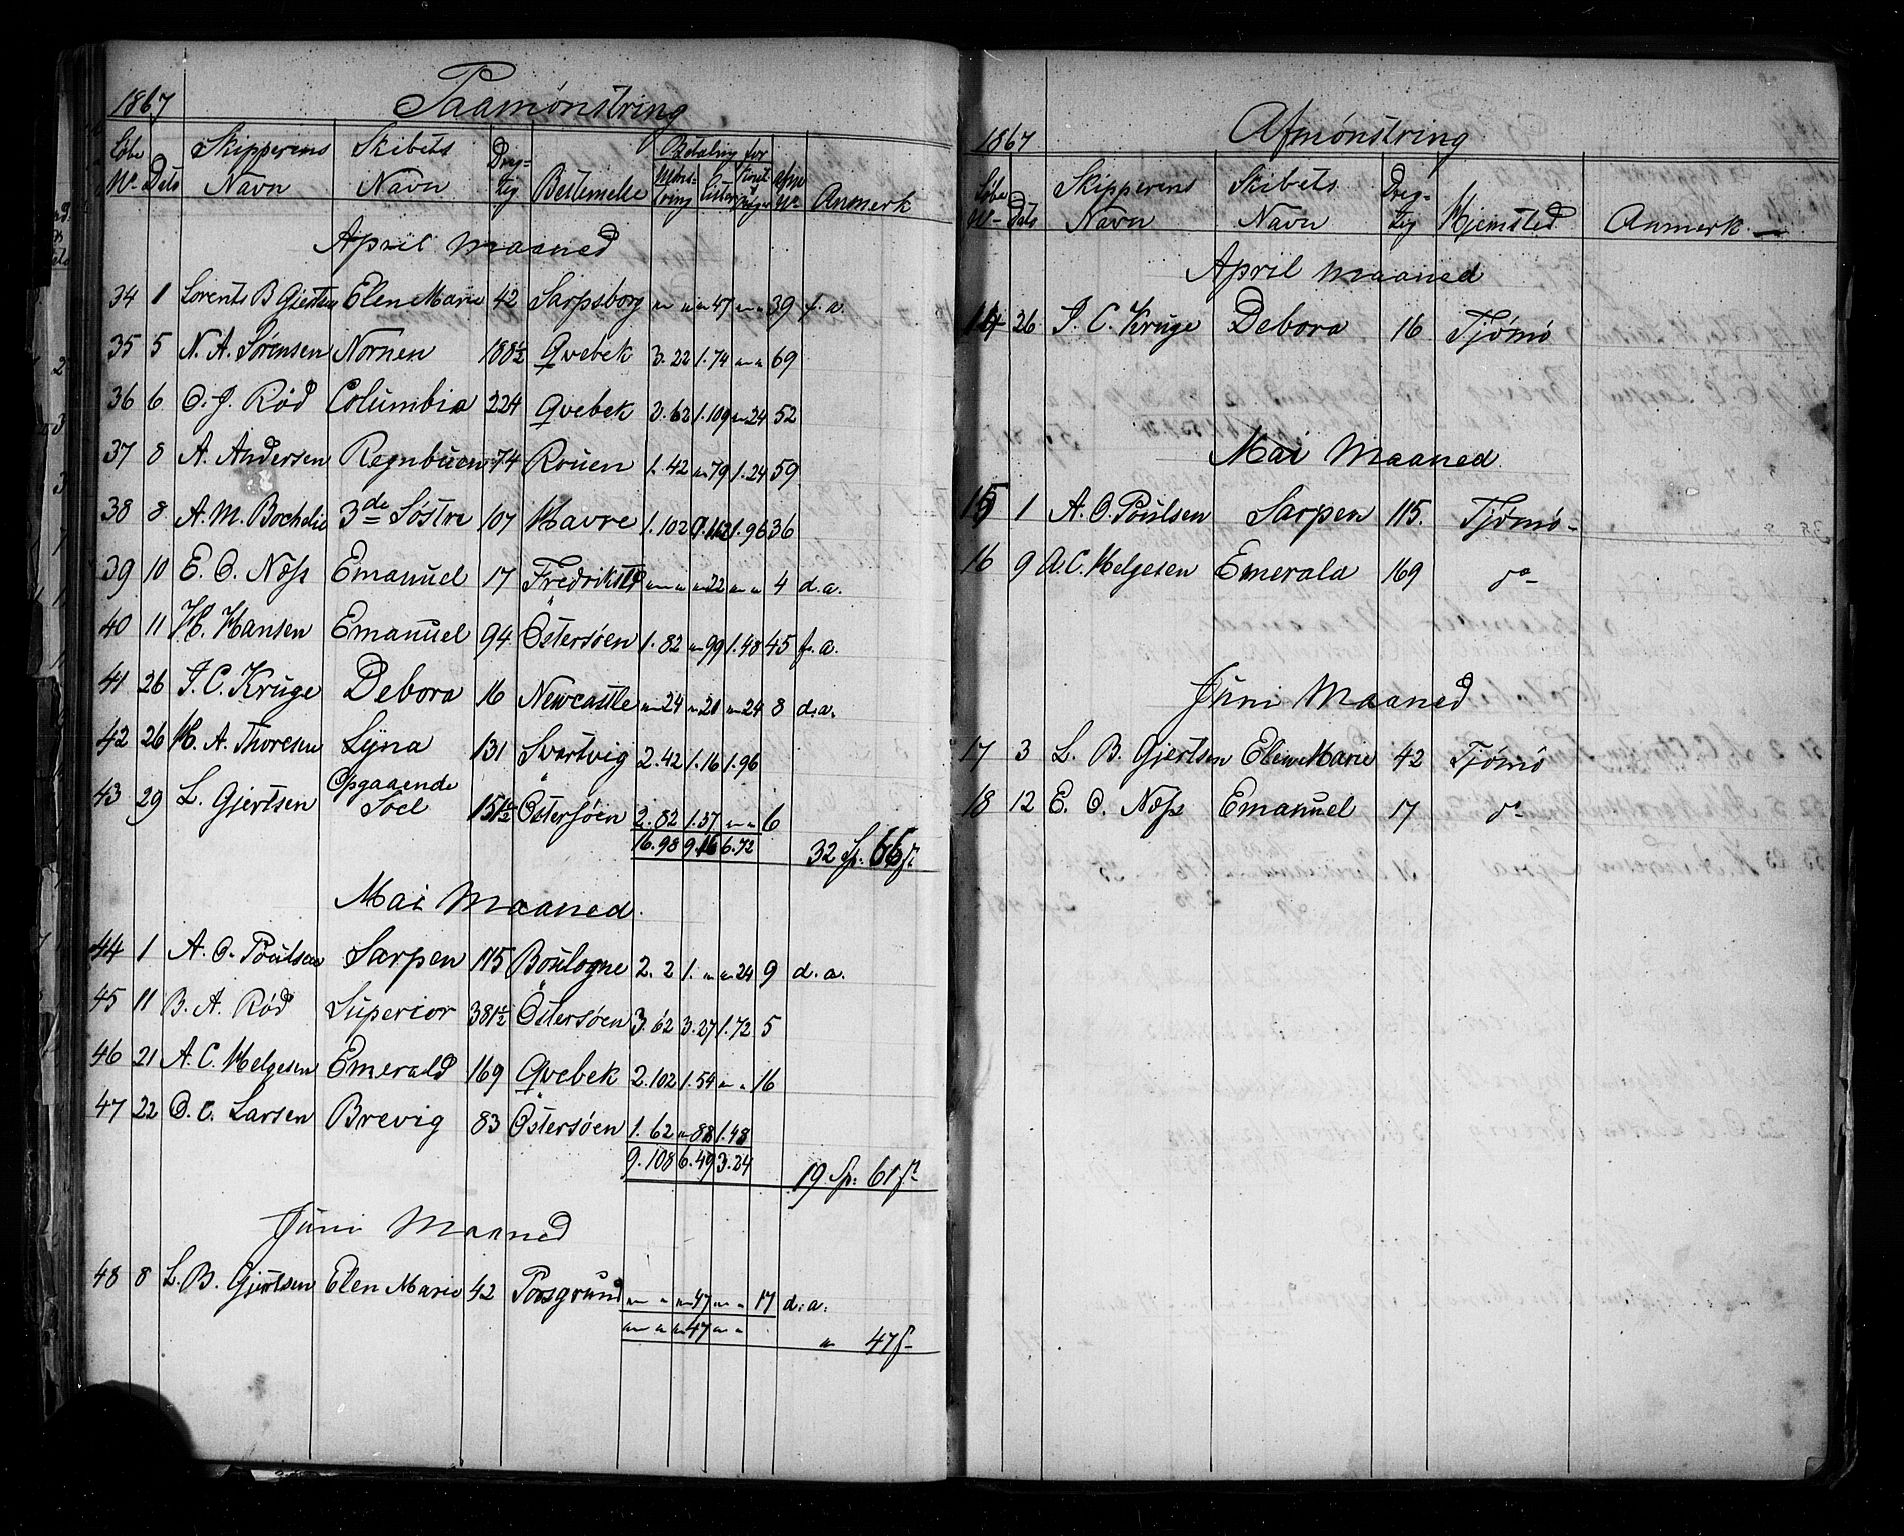 1867 Paamønstring
Løbe Skipperens Skibets Dræg- Betaling for
No Dato Navn Navn tig Bestemelse Møns- tring Lister Afm No Anmerk
April Maaned
34 1 Lorents B Gjertsen Elen Marie 42 Sarpsborg " " " 47 " " 39 f. a.
35 5 N. A. Sørensen Nornen 188½ Qvebek 3.22 1.74 " " 69
36 6 O. J. Rød Columbia 224 Qvebek 3.62 1.109 " 24 52
37 8 A. Andersen Regnbuen 74 Rouen 1.42 " 79 1.24 59
38 8 A. M. Bochelie 3de Søstre 107 Havre 1.102 1.96 36
39 10 E. O. Næss Emanuel 17 Fredrikstd " " " 22 " " 4 d. a.
40 11 H. Hansen Emanuel 94 Östersøen 1.82 " 99 1.48 45 f. a.
41 26 J. C. Kruge Debora 16 Newcastle " 24 " 21 " 24 8 d. a.
42 26 H. A. Thoresen Lyna 131 Svartvig 2.42 1.16 1.96
43 29 L. Gjertsen Opgaaende Soel 151½ Östersøen 2.82 1.37 " " 6
16.98 9.16 6.72 32 Sp: 66 ſs
Mai Maaned.
44 1 A. O. Poulsen Sarpen 115 Boulogne 2. 2 1. " " 24 9 d. a.
45 11 B. A. Rød Superior 381½ Östersøen 3.62 3.27 1.72 5
46 21 A. C. Helgesen Emerald 169 Qvebek 2.102 1.54 " " 16
47 22 O. C. Larsen Brevig 83 Östersøen 1.62 " 88 1.48
9.108 6.49 3.24 19 Sp: 61 ſs
Juni Maaned
48 8 L. B. Gjertsen Elen Marie 42 Porsgrund " " " 47 " " 17 d. a.
" " " 47 " " " 47 ſs
1867 Afmønstring
Løbe Skipperens Skibets Dræg-
No Dato Navn Navn tig Hjemsted Anmerk
April Maaned
14 26 J. C. Kruge Debora 16 Tjømø
Mai Maaned
15 1 A. O. Poulsen Sarpen 115. Tjømø
16 9 A. C. Helgesen Emerald 169 do
Juni Maaned
17 3 L. B. Gjertsen Elen Marie 42 Tjømø
18 12 E. O. Næss Emanuel 17 do